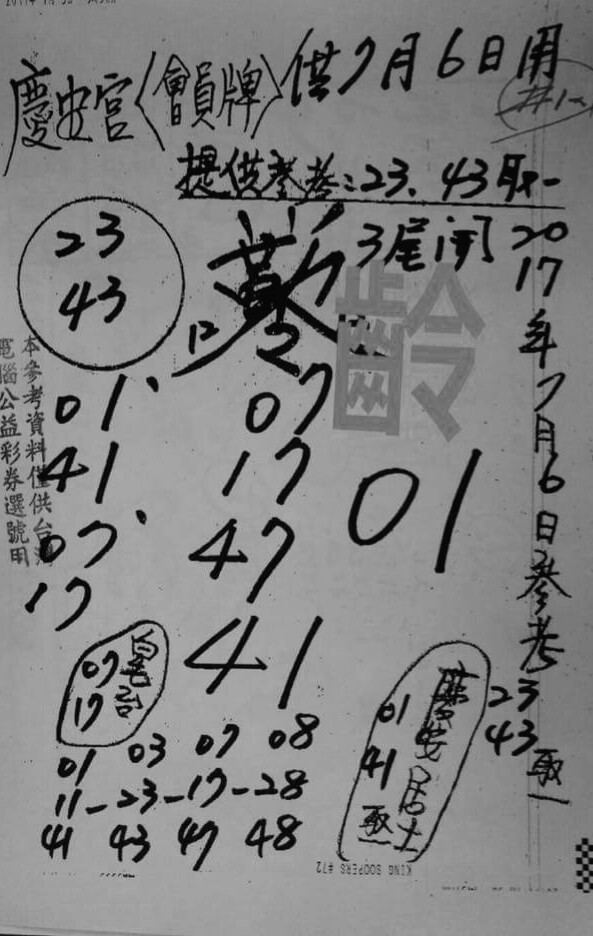 慶安宮〈會員牌〉供7月6日用
提供參考:23、43取一
3尾開
2017年7月6日參考
23
43
取一
23
43
12
01
41
07
17
07
17
47
41
01
齡
本參考資料僅供台灣
電腦公益彩券選號用
皇台
07
17
慶安居士
01
41
取一
01 03 07 08
11-23-17-28
41 43 47 48
KING SOOPERS #72